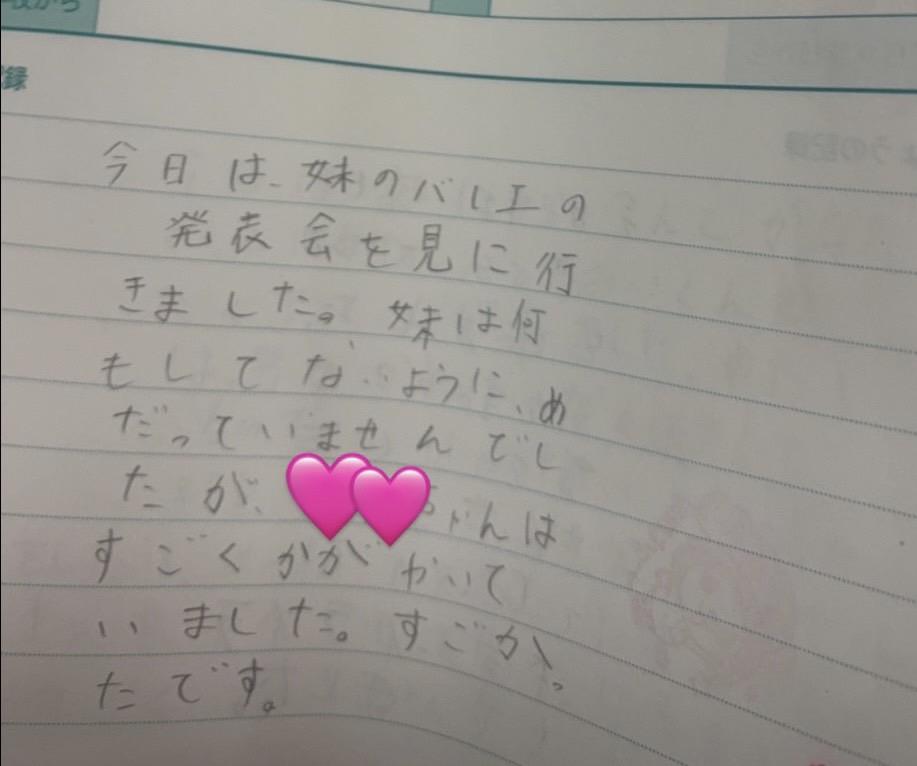 録
今日は、妹のバレエの
発表会を見に行
きました。妹は何
もしてないように、め
だっていませんでし
たが、ちゃんは
すごくかがかいて
いました。すごかっ
たです。